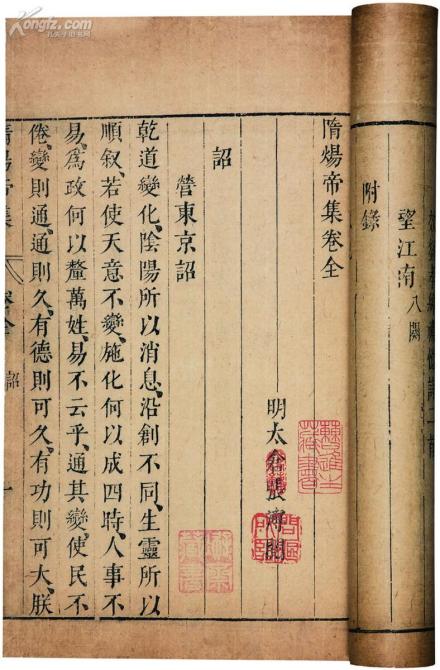 附錄
望江南八闋
隋煬帝集卷全
明太倉張溥閱
詔
營東京詔
乾道變化、陰陽所以消息、沿創不同、生靈所以
順叙、若使天意不變、施化何以成四時、人事不
易、爲政何以釐萬姓、易不云乎、通其變、使民不
倦、變則通、通則久、有德則可久、有功則可大、朕
隋煬帝集 卷全 詔 一
Kongfz.com
孔夫子旧书网